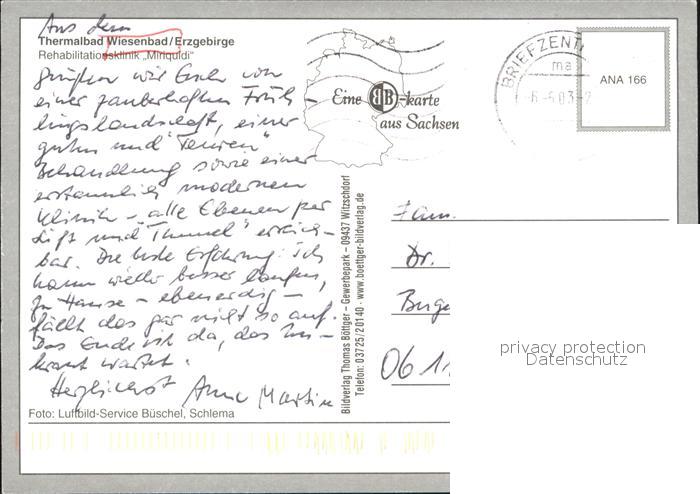 Aus dem
Thermalbad Wiesenbad/Erzgebirge
Rehabilitationsklinik „Miriquidi"
grüßen wir Euch von
einer zauberhaften Früh-
lingslandschaft, einer
guten und "Teuren"
Behandlung sowie einer
erstaunlich modernen
Klinik - alle Ebenen per
Lift und "Tunnel" erreich-
bar. Die beste Erfahrung: ich
kann wieder besser laufen,
zu Hause - ebenerdig -
fällt das gar nicht so auf.
Das Ende ist da, das Un-
kraut wartet.
Herzlichst Anne Martin
Foto: Luftbild-Service Büschel, Schlema
Bildverlag Thomas Böttger – Gewerbepark – 09437 Witzschdorf
Telefon: 03725/20140 · www.boettger-bildverlag.de
Eine BB-karte
aus Sachsen
BRIEFZENT
ma
-6.-5.03-2
ANA 166
Fam.
Dr.
06 11
privacy protection
Datenschutz